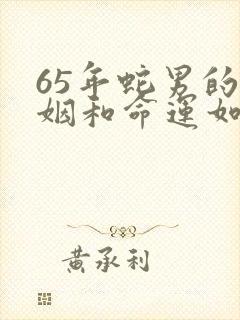 65年蛇男的
姻和命運如
黃承利